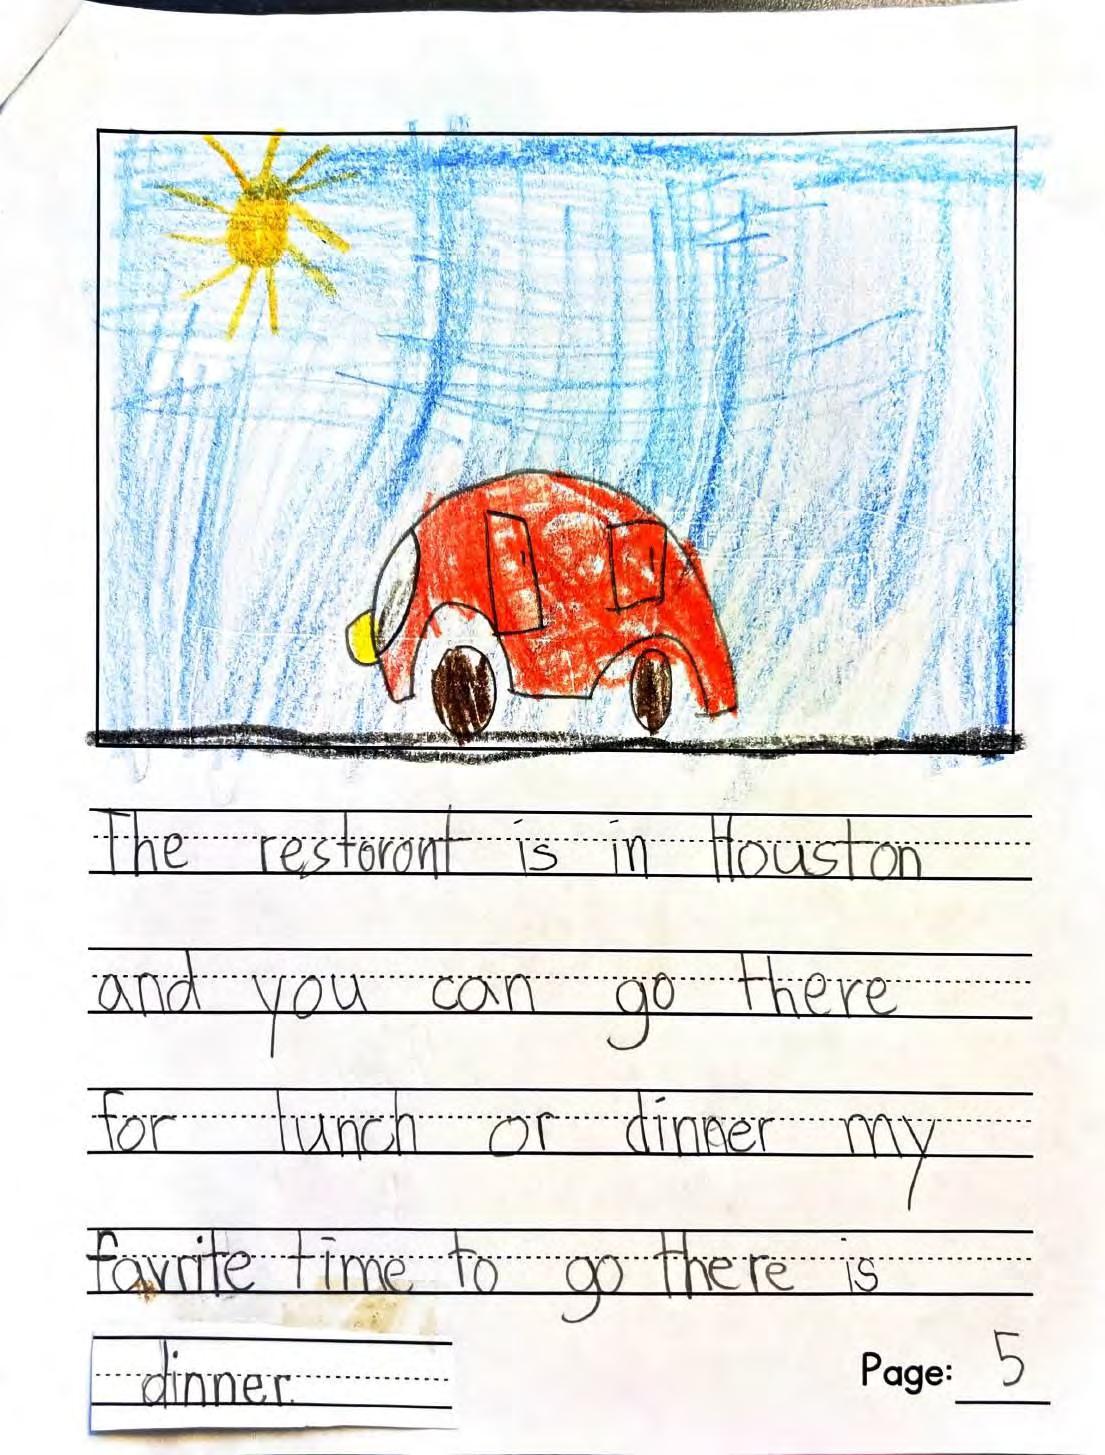 The restoront is in Houston
and you can go there
for lunch or dinner my
favrite time to go there is
dinner.
Page: 5